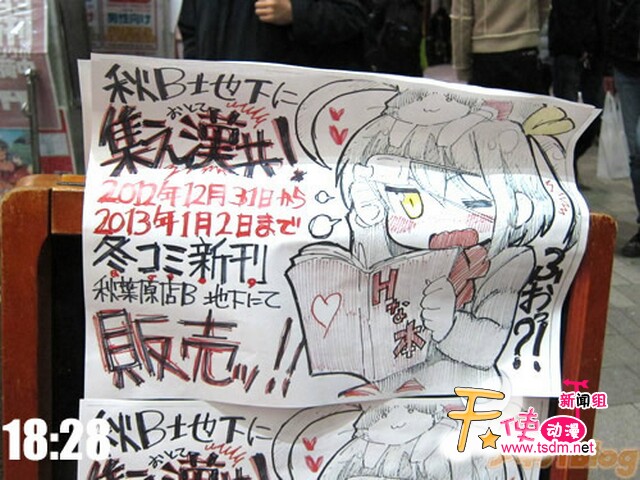 男性向け
秋B土也下に
おとこ
集え漢共!
2012年12月31日から
2013年1月2日まで
冬コミ新刊
秋葉原店B 地下にて
販売ッ!!
Hな本
ふおっ?!
秋B土也下に
おとこ
集え漢共!
18:28
天使动漫
新闻组
www.tsdm.net
blog